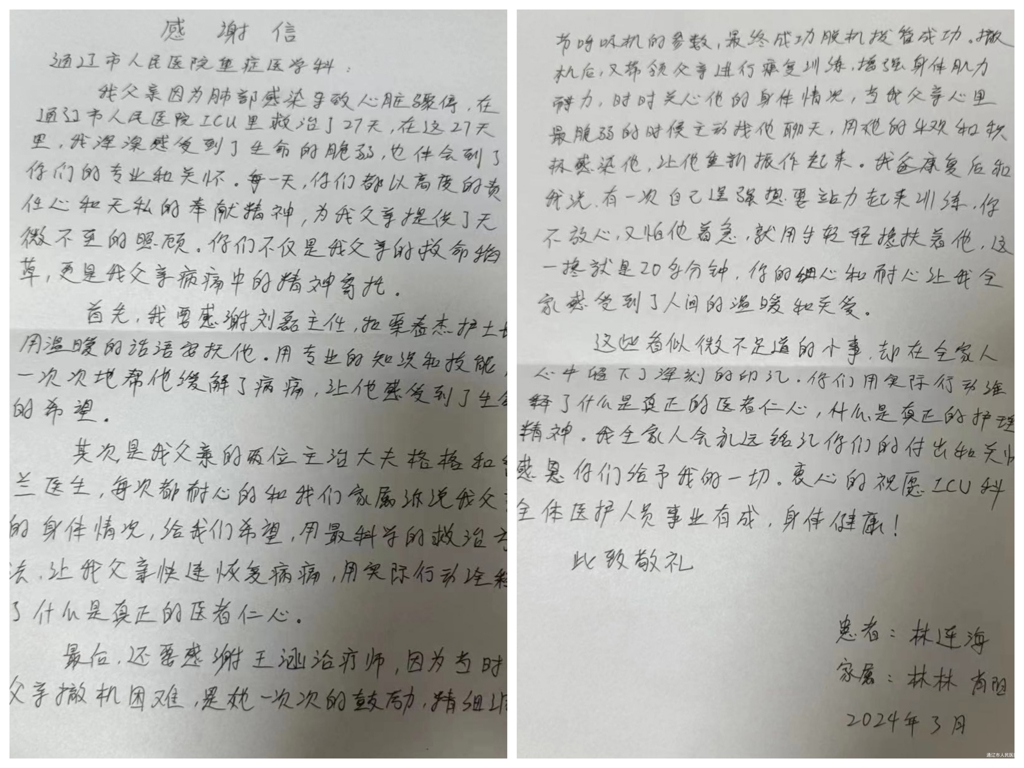 感谢信
通辽市人民医院重症医学科：
我父亲因为肺部感染导致心脏骤停，在
通辽市人民医院ICU里救治了27天，在这27天
里，我深深感受到了生命的脆弱，也体会到了
你们的专业和关怀。每一天，你们都以高度的责
任心和无私的奉献精神，为我父亲提供了无
微不至的照顾。你们不仅是我父亲的救命稻
草，更是我父亲病痛中的精神寄托。
首先，我要感谢刘磊主任，和栗春杰护士
用温暖的话语安抚他。用专业的知识和技能
一次次地帮他缓解了病痛，让他感受到了生
的希望。
其次是我父亲的两位主治大夫格格和
兰医生，每次都耐心的和我们家属诉说我父
的身体情况，给我们希望，用最科学的救治方
法，让我父亲快速恢复病痛，用实际行动诠释
了什么是真正的医者仁心。
最后，还要感谢王涵治疗师，因为当时
父亲撤机困难，是她一次次的鼓励，精细调
节呼吸机的参数，最终成功脱机拔管成功。撤
机后，又带领父亲进行康复训练，增强身体肌力
耐力，时时关心他的身体情况，当我父亲心里
最脆弱的时候主动找他聊天，用她的乐观和积
极感染他，让他重新振作起来。我爸康复后和
我说，有一次自己逞强想要站力起来训练，你
不放心，又怕他着急，就用手轻轻搀扶着他，这
一搀就是20多分钟，你的细心和耐心让我全
家感受到了人间的温暖和关爱。
这些看似微不足道的小事，却在全家人
心中留下了深刻的印记。你们用实际行动诠
释了什么是真正的医者仁心，什么是真正的护理
精神。我全家人会永远铭记你们的付出和关怀
感恩你们给予我的一切。衷心的祝愿ICU科
全体医护人员事业有成，身体健康！
此致敬礼
患者：林连海
家属：林林 肖阳
2024年3月
通辽市人民医院